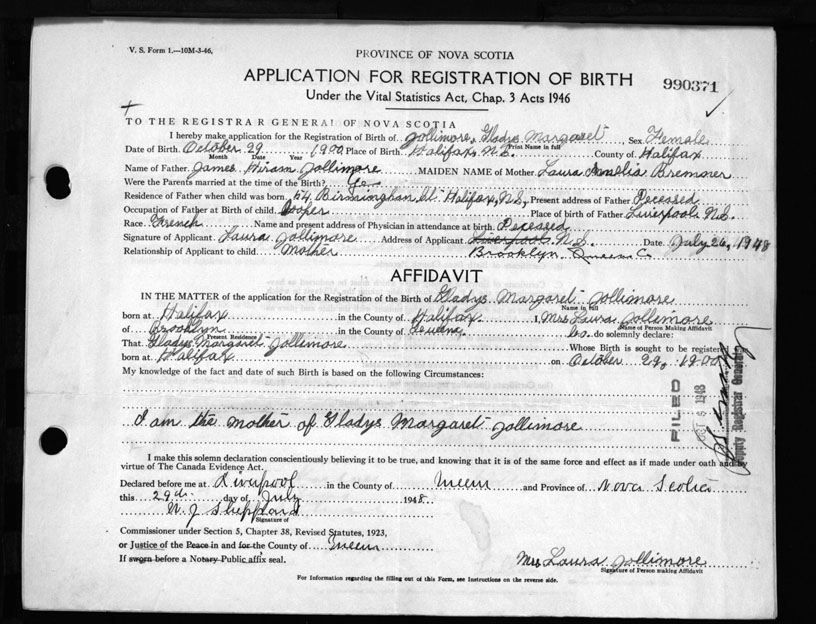 V. S. Form 1.—10M-3-46.
PROVINCE OF NOVA SCOTIA
APPLICATION FOR REGISTRATION OF BIRTH
990371
Under the Vital Statistics Act, Chap. 3 Acts 1946
TO THE REGISTRAR GENERAL OF NOVA SCOTIA
I hereby make application for the Registration of Birth of Jollimore, Gladys Margaret Sex Female
Print Name in full
Date of Birth October 29 1900 Place of Birth Halifax, N.S. County of Halifax
Month Date Year
Name of Father James Hiram Jollimore MAIDEN NAME of Mother Laura Amelia Bremner
Were the Parents married at the time of the Birth? Yes
Residence of Father when child was born 54 Birmingham St. Halifax, N.S, Present address of Father Deceased
Occupation of Father at Birth of child Cooper Place of birth of Father Liverpool N.S.
Race French Name and present address of Physician in attendance at birth Deceased
Signature of Applicant Laura Jollimore Address of Applicant Liverpool N.S. Date July 26, 1948
Relationship of Applicant to child Mother Brooklyn. Queens Co
AFFIDAVIT
IN THE MATTER of the application for the Registration of the Birth of Gladys Margaret Jollimore
Name in full
born at Halifax in the County of Halifax I Mrs Laura Jollimore
Name of Person Making Affidavit
of Brooklyn in the County of Queens do solemnly declare:
Present Residence
That Gladys Margaret Jollimore Whose Birth is sought to be registered
born at Halifax on October 29, 1900
My knowledge of the fact and date of such Birth is based on the following Circumstances:
I am the mother of Gladys Margaret Jollimore
FILED
OCT 5 1948
Deputy Registrar General
I make this solemn declaration conscientiously believing it to be true, and knowing that it is of the same force and effect as if made under oath and by
virtue of The Canada Evidence Act.
Declared before me at Liverpool in the County of Queens and Province of Nova Scotia
this 29th day of July 1948
Signature of
Commissioner under Section 5, Chapter 38, Revised Statutes, 1923,
or Justice of the Peace in and for the County of Queens
If sworn before a Notary Public affix seal.
Mrs Laura Jollimore
Signature of Person making Affidavit
For Information regarding the filling out of this Form, see Instructions on the reverse side.